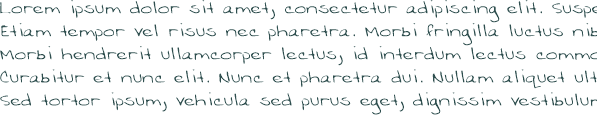 Lorem ipsum dolor sit amet, consectetur adipiscing elit. Suspe
Etiam tempor vel risus nec pharetra. Morbi fringilla luctus nib
Morbi hendrerit ullamcorper lectus, id interdum lectus commo
Curabitur et nunc elit. Nunc et pharetra dui. Nullam aliquet ult
Sed tortor ipsum, vehicula sed purus eget, dignissim vestibulum